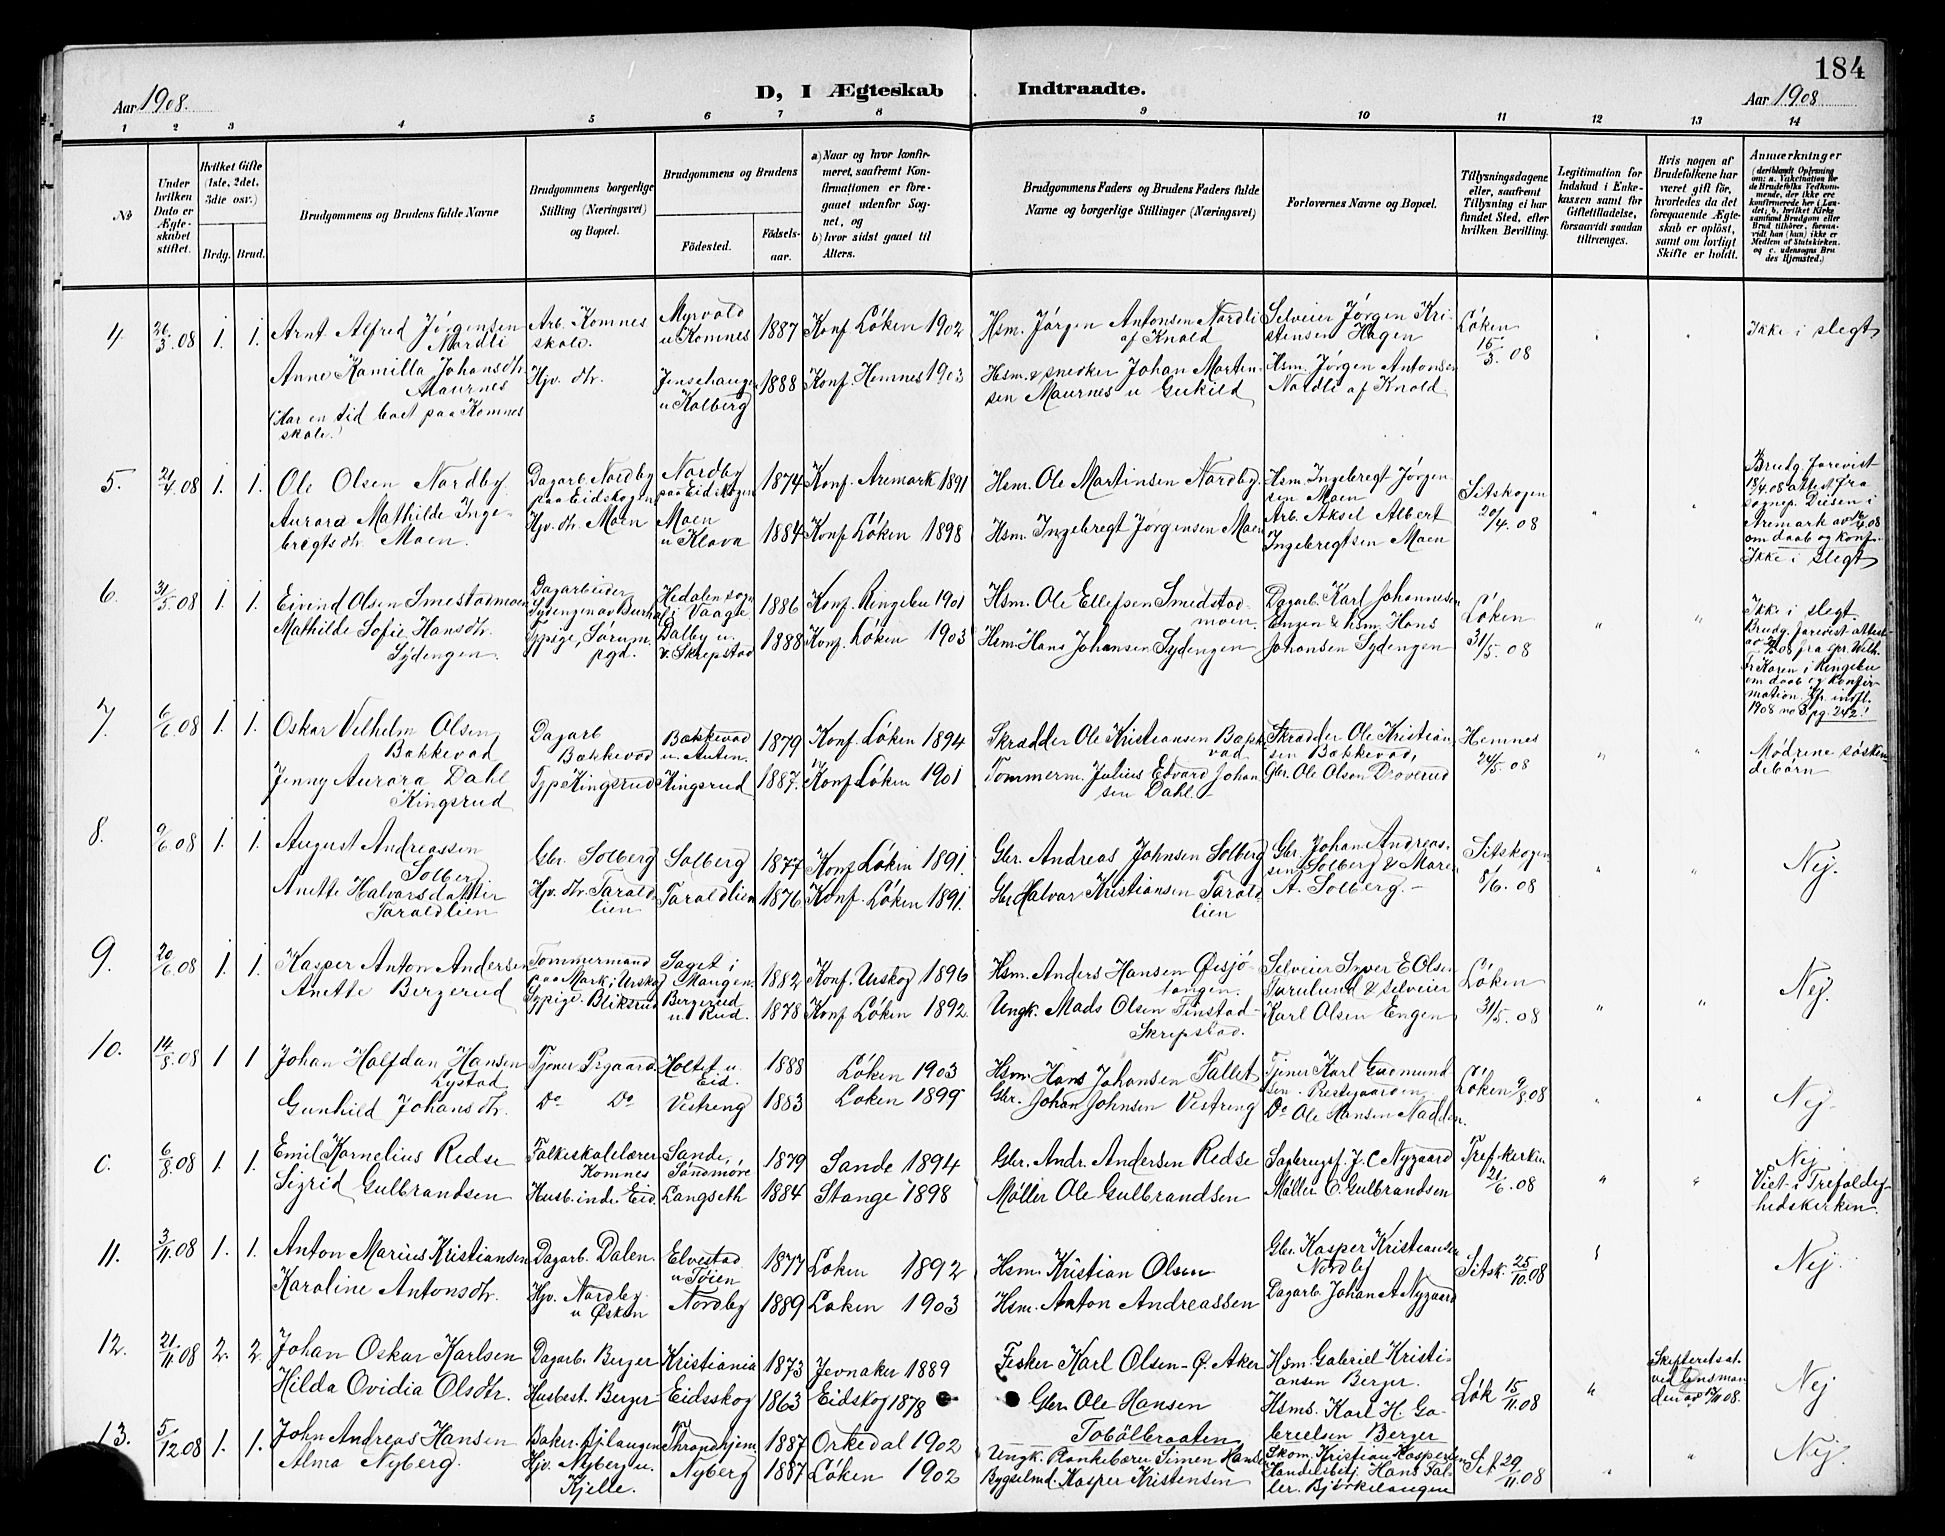 184
Aar 1908.
D, I Ægteskab Indtraadte.
Aar 1908
1 2 3 4 5 6 7 8 9 10 11 12 13 14
No
Under hvilken Dato er Ægteskabet stiftet.
Hvilket Gifte (1ste, 2det, 3die osv.)
Brdg. Brud.
Brudgommens og Brudens fulde Navne
Brudgommens borgerlige Stilling (Næringsvei) og Bopæl.
Brudgommens og Brudens
Fødested.
Fødselsaar.
a) Naar og hvor konfirmeret, saafremt Konfirmationen er foregaaet udenfor Sognet, og
b) hvor sidst gaaet til Alters.
Brudgommens Faders og Brudens Faders fulde Navne og borgerlige Stillinger (Næringsvei)
Forlovernes Navne og Bopæl.
Tillysningsdagene eller, saafremt Tillysning ei har fundet Sted, efter hvilken Bevilling.
Legitimation for Indskud i Enkekassen samt for Giftetilladelse, forsaavidt saadan tiltrænges.
Hvis nogen af Brudefolkene har været gift før, hvorledes da det foregaaende Ægteskab er opløst, samt om lovligt Skifte er holdt.
Anmærkninger
4. 26/3.08 1. 1. Arnt Alfred Jørgensen Nordli Arb. Komnes skole. Myrvold u Komnes 1887 Konf. Løken 1902 Hsm. Jørgen Antonsen Nordli af Knold Selveier Jørgen Kristensen Hagen Løken 15/3.08 Ikke i slegt
Anne Kamilla Johansdtr. Maurnes Hjv. dtr. Jensehaugen u Kolberg 1888 Konf. Hemnes 1903 Hsm. & snedker Johan Martinsen Maurnes u Gukild Hsm. Jørgen Antonsen Nordli af Knold.
(Har en tid boet paa Komnes skole.)
5. 21/4.08 1. 1. Ole Olsen Nordby Dagarb. Nordby paa Eidskogen Nordby paa Eidskogen 1874 Konf. Aremark 1891 Hsm. Ole Martinsen Nordby. Hsm. Ingebregt Jørgensen Moen Sitskogen 20/4.08 Brudg. forevist 18/4.08 attest fra sognep. Diesen i Aremark om daab og konf. Ikke i slegt
Aurora Mathilde Ingebregtsdtr. Moen. Hjv. dtr. Moen Moen u Klova 1884 Konf. Løken 1898 Hsm. Ingebregt Jørgensen Moen Arb. Aksel Albert Ingebregtsen Moen
6. 31/5.08 1. 1. Eivind Olsen Smestadmoen Dagarbeider Sydengen Hedalen sogn Vaage 1886 Konf. Ringebu 1901 Hsm. Ole Ellefsen Smedstadmoen. Dagarb. Karl Johannesen Engen & hsm. Hans Johansen Sydengen Løken 31/5.08 Ikke i slegt. Brudg. forevist attest fra i Ringebu om daab og konfirmation. 1908 no 3 pg. 242!
Mathilde Sofie Hansdtr. Sydengen. Sypige, Sørum pgd. Dalby u. v. Skrepstad 1888 Konf. Løken 1903 Hsm. Hans Johansen Sydengen
7. 6/6.08 1. 1. Oskar Vilhelm Olsen Bakkevad Dagarb Bakkevad Bakkevad 1879 Konf. Løken 1894 Skrædder Ole Kristiansen Bakkevad Skrædder Ole Kristiansen Bakkevad, Hemnes 24/5.08 Mødrene søskendebørn
Jenny Aurora Dahl Kingsrud Kingsrud Kingsrud 1887. Konf. Løken 1901 Tommerm. Julius Edvard Johansen Dahl. Gbr. Ole Olson
8. 9/6.08 1. 1. August Andreassen Solberg Gbr. Solberg Solberg 1877 Konf. Løken 1891. Gbr. Andreas Johnsen Solberg Gbr. Johan Andreassen Solberg & Maren A. Solberg. Sitskogen 8/6.08 Nej.
Anette Halvarsdatter Taraldlien Hjv. dtr. Taraldlien Taraldlien 1876 Konf. Løken 1891. Gbr. Halvar Kristiansen Taraldlien
9. 20/6.08 1. 1. Kasper Anton Andersen Tømmermand paa Mark i Urskog Saget i Mangen 1882 Konf. Urskog 1896 Hsm. Anders Hansen Øisjøtangen. Selveier Syver E Olsen & selveier Karl Olsen Engen Løken 31/5.08 Nej.
Anette Bergerud Sypige. Bliksrud Bergerud u. Rud. 1878 Konf. Løken 1892. Ungk. Mads Olsen Finstad Skrepstad.
10. 14/8.08 1 1 Johan Halfdan Hansen Lystad Tjener Prgaard. Holtet u. Eid. 1888 Løken 1903 Hsm. Hans Johansen Fallet Tjener Karl Gudmundsen. Prestegaarden Løken 9/8.08 Nej.
Gunhild Johansdtr. Do Do Vestreng 1883 Løken 1899 Gbr. Johan Johnsen Vestreng Do Ole Hansen Nadden.
c. 6/8.08 1. 1. Emil Kornelius Redse Folkeskolelærer Komnes Sande, Søndmøre 1879 Sande 1894 Gbr. Andr. Andersen Redse J. C Nygaard Tref. kirken 21/6.08 Nej Viet i Trefoldighedskirken.
Sigrid Gulbrandsen Eid. Langseth 1884 Stange 1898 Møller Ole Gulbrandsen Møller O. Gulbrandsen
11. 3/11.08 1. 1. Anton Marius Kristiansen Dagarb. Dalen Elvestad u Tøien 1877 Løken 1892 Hsm. Kristian Olsen Gbr. Kasper Kristiansen Nordby Sitsk. 25/10.08 Nej.
Karoline Antonsdtr. Hjv. Nordby u Øsken Nordby 1889 Løken 1903 Hsm. Anton Andreassen Dagarb. Johan A Nygaard
12. 21/11.08 2. 2. Johan Oskar Karlsen Dagarb. Berger Kristiania 1873 Jevnaker 1889 Fisker Karl Olsen - Ø. Aker Hsm. Gabriel Kristiansen Berger. Løk 15/11.08 Skifteretsat. ved lensmanden Nej
Hilda Ovidia Olsdtr. Husbest. Berger Eidsskog 1863 Eidskog 1878 Gbr. Ole Hansen Tobølbraaten Hsms. Karl H. Gabrielsen Berger
13. 5/12 08 1. 1. John Andreas Hansen Baker. Bjlangen Throndhjem 1887 Orkedal 1902 Ungk. Plankebærer Simen Hansen Skom. Kristian Kaspersen Sit 29/11.08 Nej.
Alma Nyberg. Hjv. Nyberg u. Kjelle. Nyberg 1887 Løken 1902 Bygselmd. Kasper Kristensen Handelsbetj. Hans Faller. Bjørkelangen